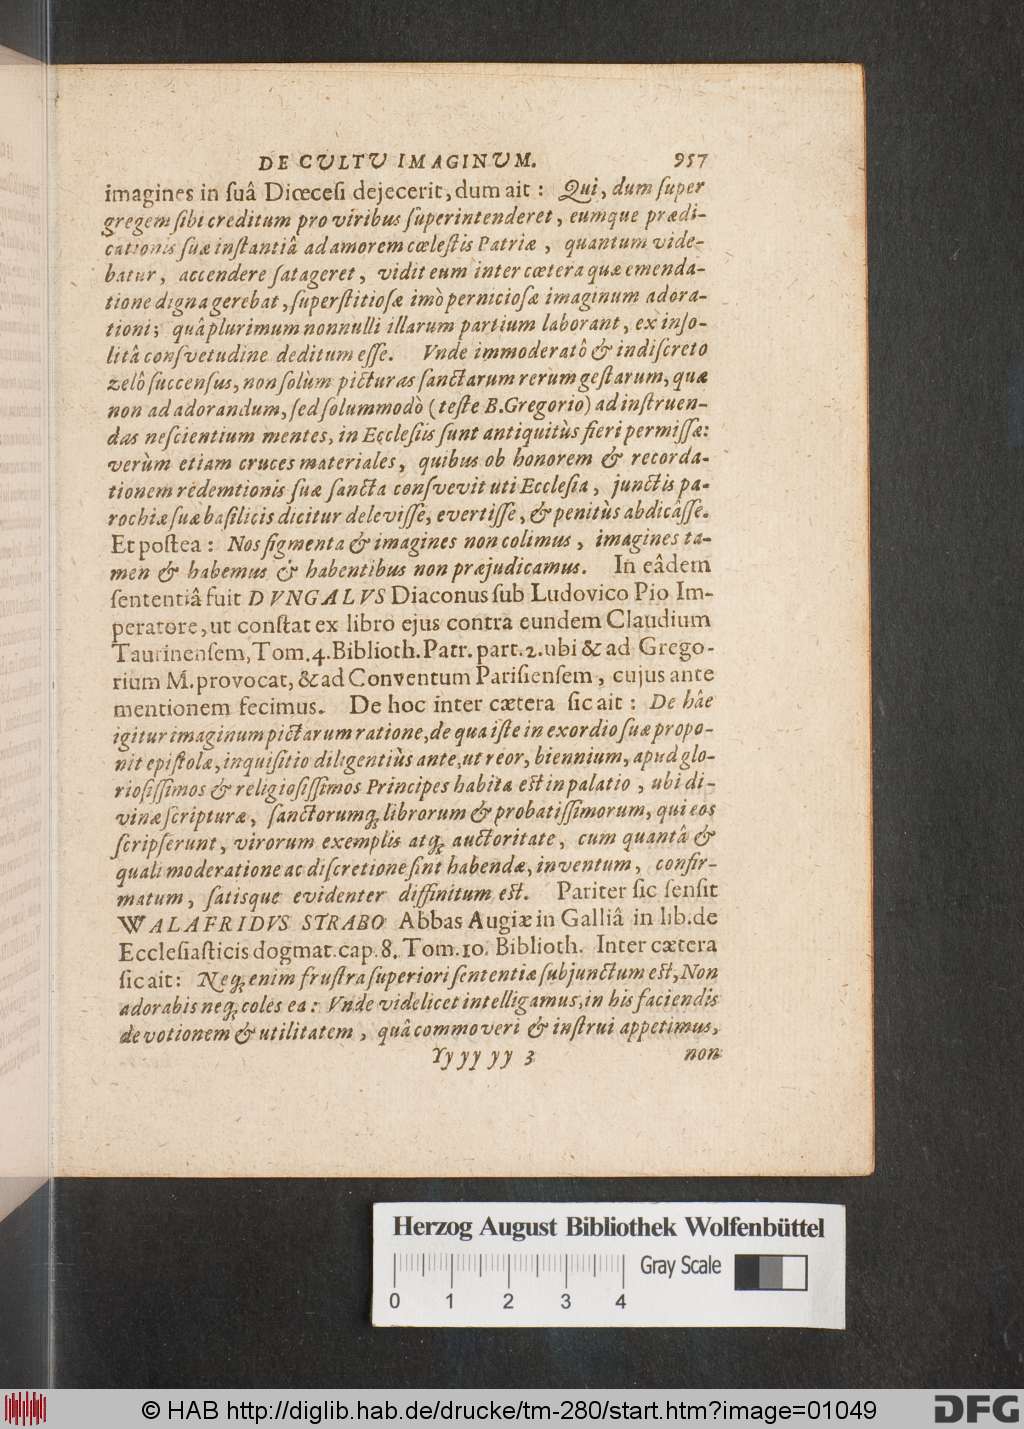 DE CULTU IMAGINUM. 957
imagines in ſuâ Diœceſi dejecerit, dum ait: Qui, dum ſuper
gregem ſibi creditum pro viribus ſuperintenderet, eumque prædi-
cationis ſuæ inſtantiâ ad amorem cœleſtis Patriæ, quantum vide-
batur, accendere ſatageret, vidit eum inter cœtera quæ emenda-
tione digna gerebat, ſuperſtitioſæ imò pernicioſæ imaginum adora-
tioni; quâ plurimum nonnulli illarum partium laborant, ex inſo-
litâ conſvetudine deditum eſſe. Vnde immoderatô & indiſcreto
zelô ſuccenſus, non ſolùm picturas ſanctarum rerum geſtarum, quæ
non ad adorandum, ſed ſolummodò (teſte B. Gregorio) ad inſtruen-
das neſcientium mentes, in Eccleſiis ſunt antiquitùs fieri permiſſæ:
verùm etiam cruces materiales, quibus ob honorem & recorda-
tionem redemtionis ſuæ ſancta conſvevit uti Eccleſia, junctis pa-
rochiæ ſuæ baſilicis dicitur deleviſſe, evertiſſe, & penitùs abdicâſſe.
Et poſtea: Nos figmenta & imagines non colimus, imagines ta-
men & habemus & habentibus non præjudicamus. In eâdem
ſententiâ fuit DVNGALVS Diaconus ſub Ludovico Pio Im-
peratore, ut conſtat ex libro ejus contra eundem Claudium
Taurinenſem, Tom. 4. Biblioth. Patr. part. 2. ubi & ad Grego-
rium M. provocat, & ad Conventum Pariſienſem, cujus ante
mentionem fecimus. De hoc inter cætera ſic ait: De hâe
igitur imaginum pictarum ratione, de qua iſte in exordio ſuæ propo-
nit epiſtolæ, inquiſitio diligentiùs ante, ut reor, biennium, apud glo-
rioſiſſimos & religioſiſſimos Principes habita eſt in palatio, ubi di-
vinæ ſcripturæ, ſanctorumq; librorum & probatiſſimorum, qui eos
ſcripſerunt, virorum exemplis atq; auctoritate, cum quantâ &
quali moderatione ac diſcretione ſint habendæ, inventum, confir-
matum, ſatisque evidenter diffinitum eſt. Pariter ſic ſenſit
WALAFRIDVS STRABO Abbas Augiæ in Galliâ in lib. de
Eccleſiaſticis dogmat. cap. 8. Tom. 10. Biblioth. Inter cætera
ſic ait: Neq; enim fruſtra ſuperiori ſententiæ ſubjunctum eſt, Non
adorabis neq; coles ea: Vnde videlicet intelligamus, in his faciendis
devotionem & utilitatem, quâ commoveri & inſtrui appetimus,
Yy yy yy 3 non
Herzog August Bibliothek Wolfenbüttel
Gray Scale
0 1 2 3 4
© HAB http://diglib.hab.de/drucke/tm-280/start.htm?image=01049
DFG